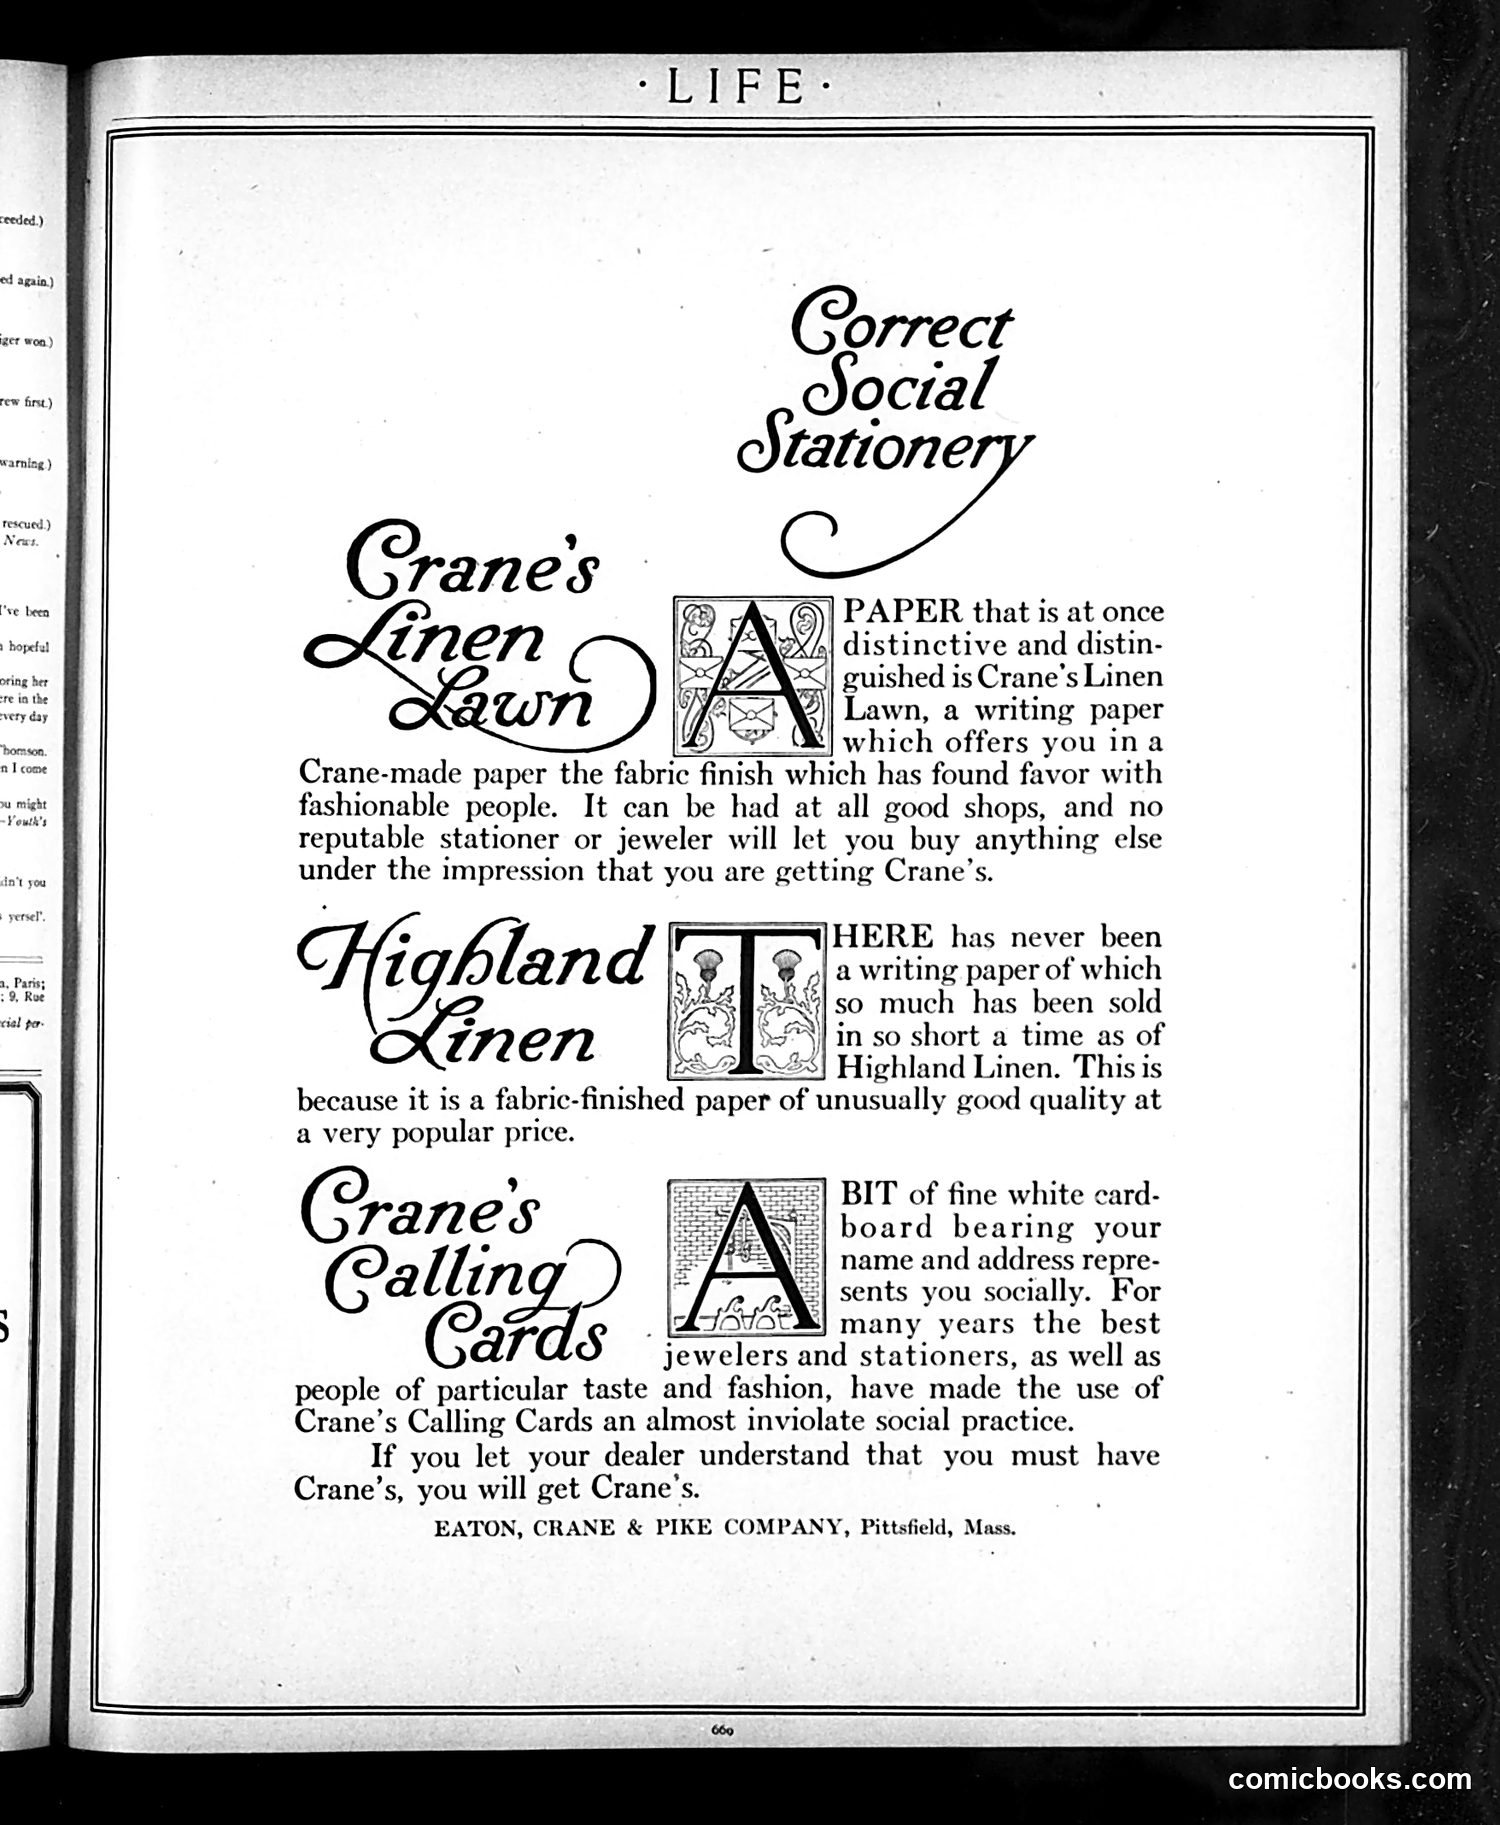 · LIFE ·
ceeded.)
ed again.)
iger won.)
rew first.)
warning.)
rescued.)
News.
I've been
hopeful
oring her
ere in the
every day
Thomson.
n I come
ou might
—Youth's
dn't you
yersel'.
a, Paris;
; 9, Rue
cial per-
S
Correct
Social
Stationery
Crane's
Linen
Lawn
A PAPER that is at once
distinctive and distin-
guished is Crane's Linen
Lawn, a writing paper
which offers you in a
Crane-made paper the fabric finish which has found favor with
fashionable people. It can be had at all good shops, and no
reputable stationer or jeweler will let you buy anything else
under the impression that you are getting Crane's.
Highland
Linen
THERE has never been
a writing paper of which
so much has been sold
in so short a time as of
Highland Linen. This is
because it is a fabric-finished paper of unusually good quality at
a very popular price.
Crane's
Calling
Cards
A BIT of fine white card-
board bearing your
name and address repre-
sents you socially. For
many years the best
jewelers and stationers, as well as
people of particular taste and fashion, have made the use of
Crane's Calling Cards an almost inviolate social practice.
If you let your dealer understand that you must have
Crane's, you will get Crane's.
EATON, CRANE & PIKE COMPANY, Pittsfield, Mass.
669
comicbooks.com